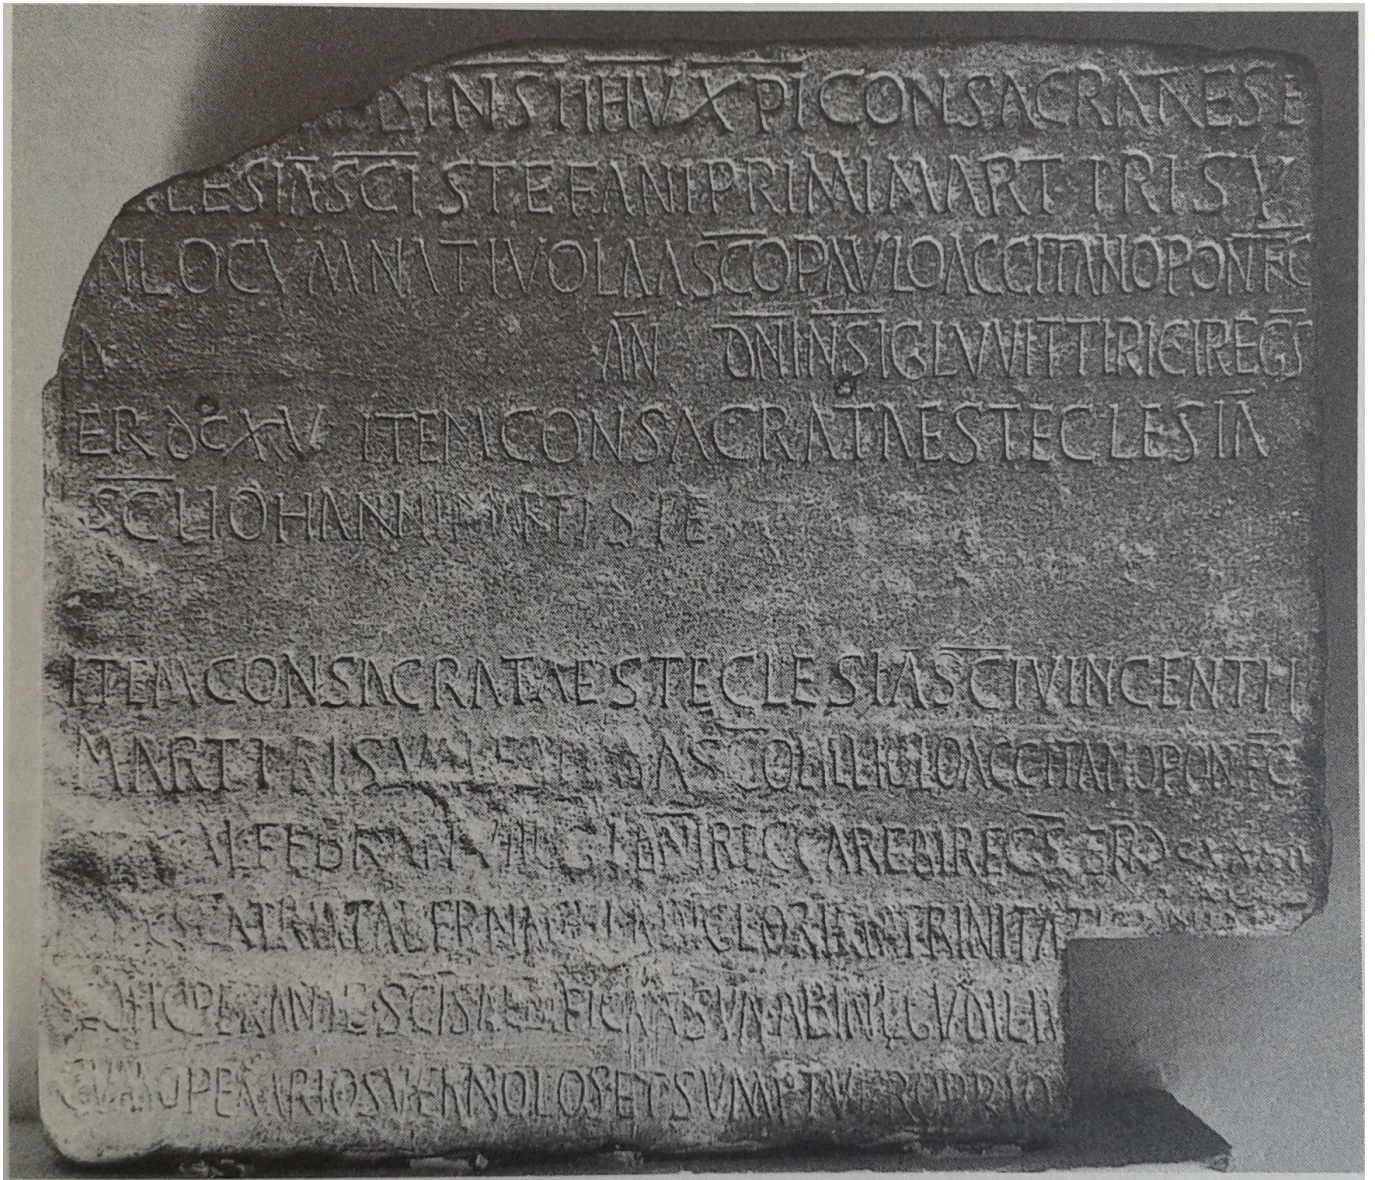 DNI NSI IHU XPI CONSACRATA EST E
CLESIA SCI STEFANI PRIMI MARTIRIS
LOCUM NATIVOLA A SCO PAULO ACCITANO PONFC
AN DNI NSI GL VVITTIRICI REGS
ER DCXV ITEM CONSACRATA EST ECLESIA
SCI IOHANNI
ITEM CONSACRATA EST ECLESIA SCI VINCENTII
MARTIRIS A SCO LILLIOLO ACCITANO PONFC
FEBR AN VIII GL DNI RECCAREDI REGS ER
TABERNACULA IN GLORIAM TRINITATIS
SCIS AEDIFICATA SUNT AB INL GUDILIU
CUM OPERARIOS VERNOLOS ET SUMPTU PROPRIO